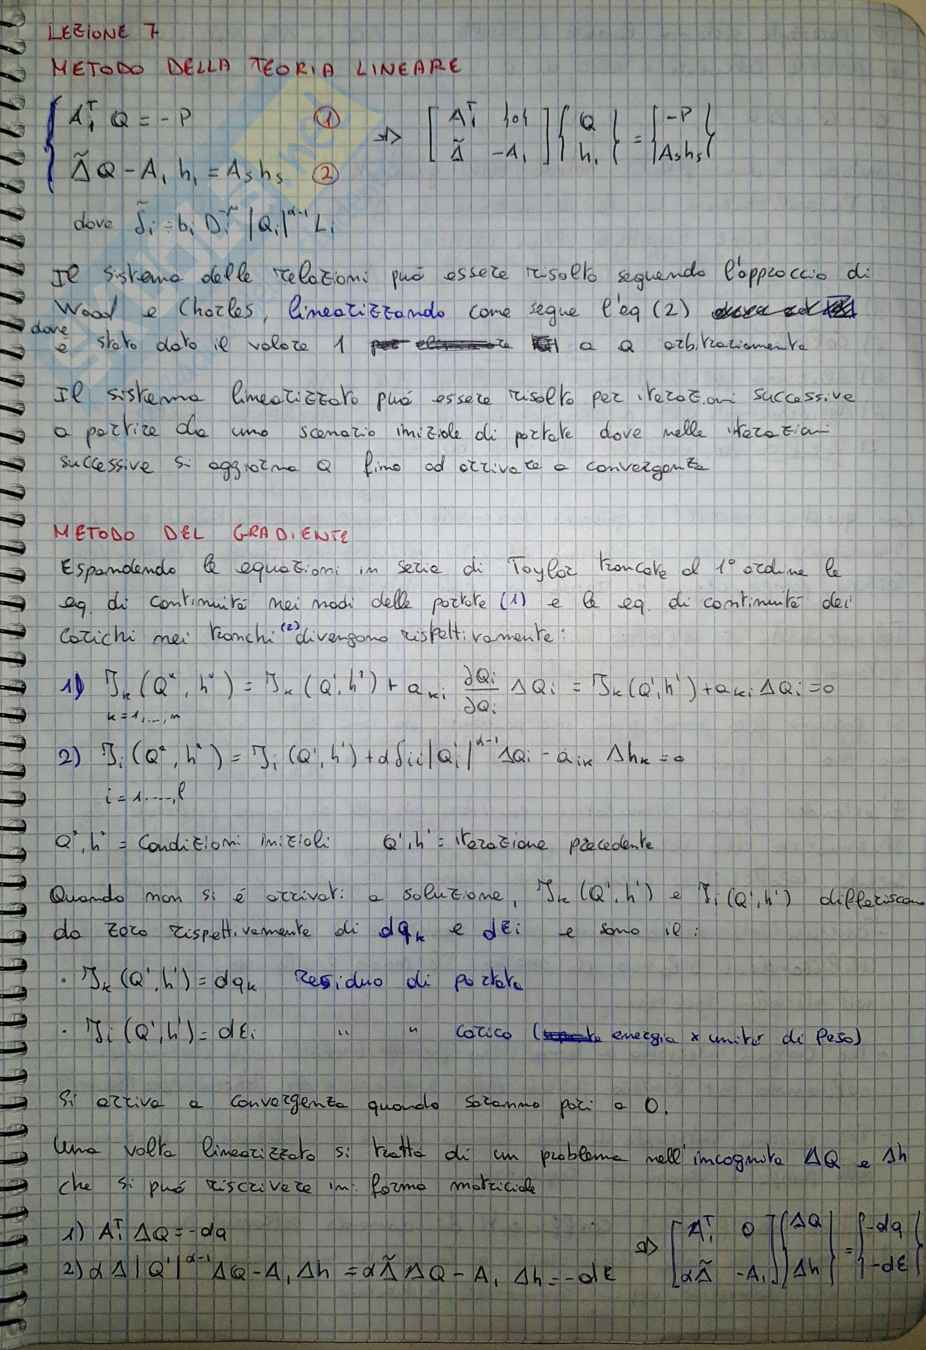 LEZIONE 7
METODO DELLA TEORIA LINEARE
A₁ᵀ Q = -P ① => [A₁ᵀ {0}; Δ̃ -A₁] {Q; h₁} = {-P; Ashs}
Δ̃ Q - A₁ h₁ = As hs ②
dove δ̃i = bi Di⁻ʳ |Qi|^α-1 Li
Il sistema delle relazioni può essere risolto seguendo l'approccio di
Wood e Charles, linearizzando come segue l'eq (2)
dove
è stato dato il valore 1 a Q arbitrariamente
Il sistema linearizzato può essere risolto per iterazioni successive
a partire da uno scenario iniziale di portate dove nelle iterazioni
successive si aggiorna Q fino ad arrivare a convergenza
METODO DEL GRADIENTE
Espandendo le equazioni in serie di Taylor troncate al 1° ordine le
eq. di continuità nei nodi delle portate (1) e le eq. di continuità dei
carichi nei tronchi (2) divengono rispettivamente:
1) ℑk (Q°, h°) = ℑk (Q', h') + aki ∂Qi/∂Qi ΔQi = ℑk (Q', h') + aki ΔQi = 0
k=1,...,n
2) ℑi (Q°, h°) = ℑi (Q', h') + α δii |Qi'|^α-1 ΔQi - aik Δhk = 0
i = 1....,l
Q°, h° = Condizioni iniziali Q', h' = iterazione precedente
Quando non si è arrivati a soluzione, ℑk (Q', h') e ℑi (Q', h') differiscono
da zero rispettivamente di dqk e dεi e sono il:
· ℑk (Q', h') = dqk Residuo di portata
· ℑi (Q', h') = dεi " " carico ( energia x unità di peso)
Si arriva a convergenza quando saranno pari a 0.
Una volta linearizzato si tratta di un problema nell'incognita ΔQ e Δh
che si può riscrivere in forma matriciale
1) A₁ᵀ ΔQ = -dq => [A₁ᵀ 0; αΔ̃ -A₁] {ΔQ; Δh} = {-dq; -dε}
2) α Δ |Q'|^α-1 ΔQ - A₁ Δh = αΔ̃ ΔQ - A₁ Δh = -dε